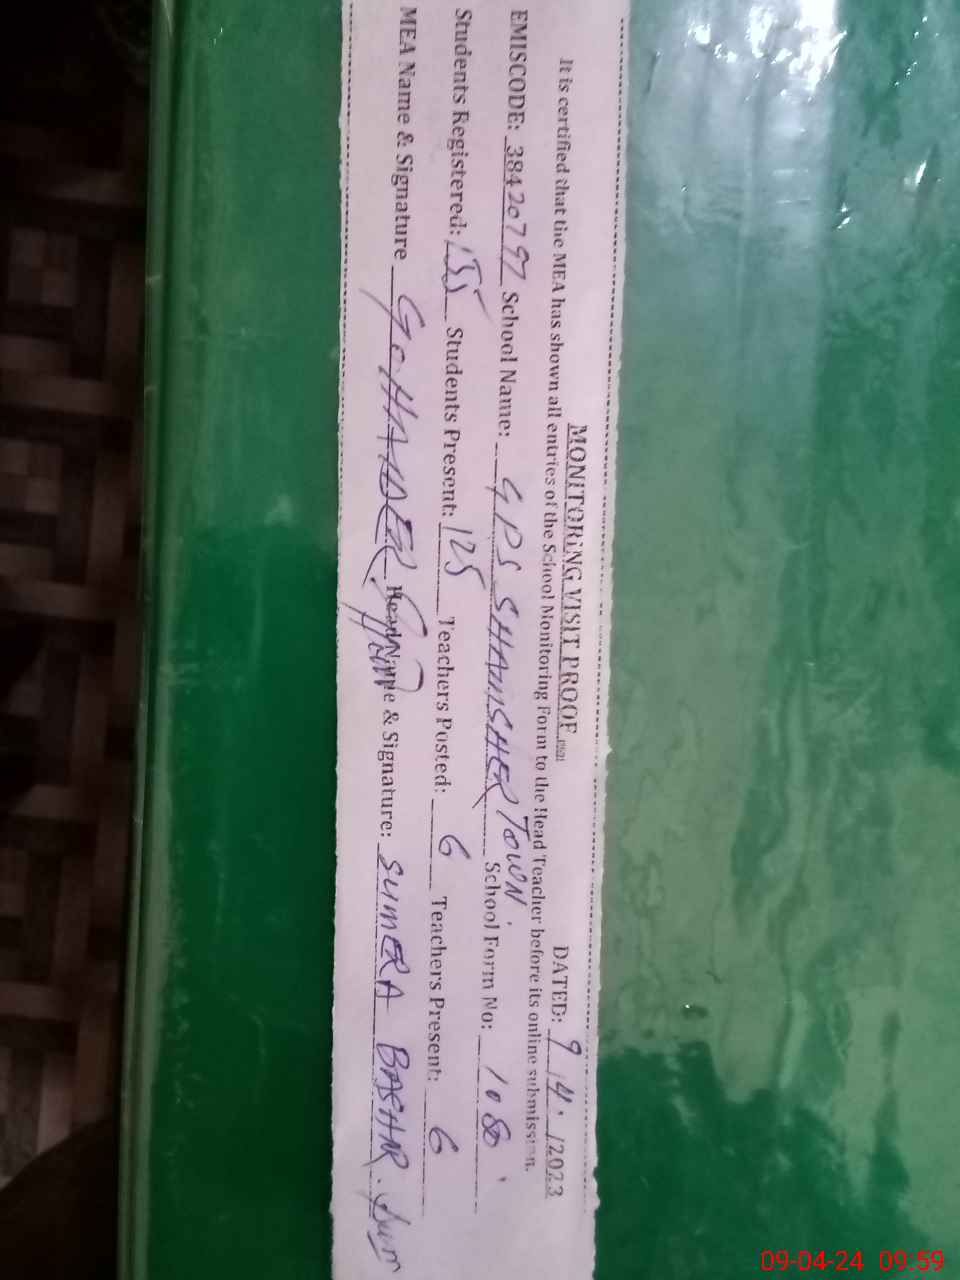 MONITORING VISIT PROOF DATED: 9/4./2023
It is certified that the MEA has shown all entries of the School Monitoring Form to the Head Teacher before its online submission.
EMISCODE: 38420797 School Name: GPS SHAMSHER TOWN. School Form No: 1080
Students Registered: 155 Students Present: 125 Teachers Posted: 6 Teachers Present: 6
MEA Name & Signature Head Name & Signature: SUMERA BASHIR.
09-04-24 09:59